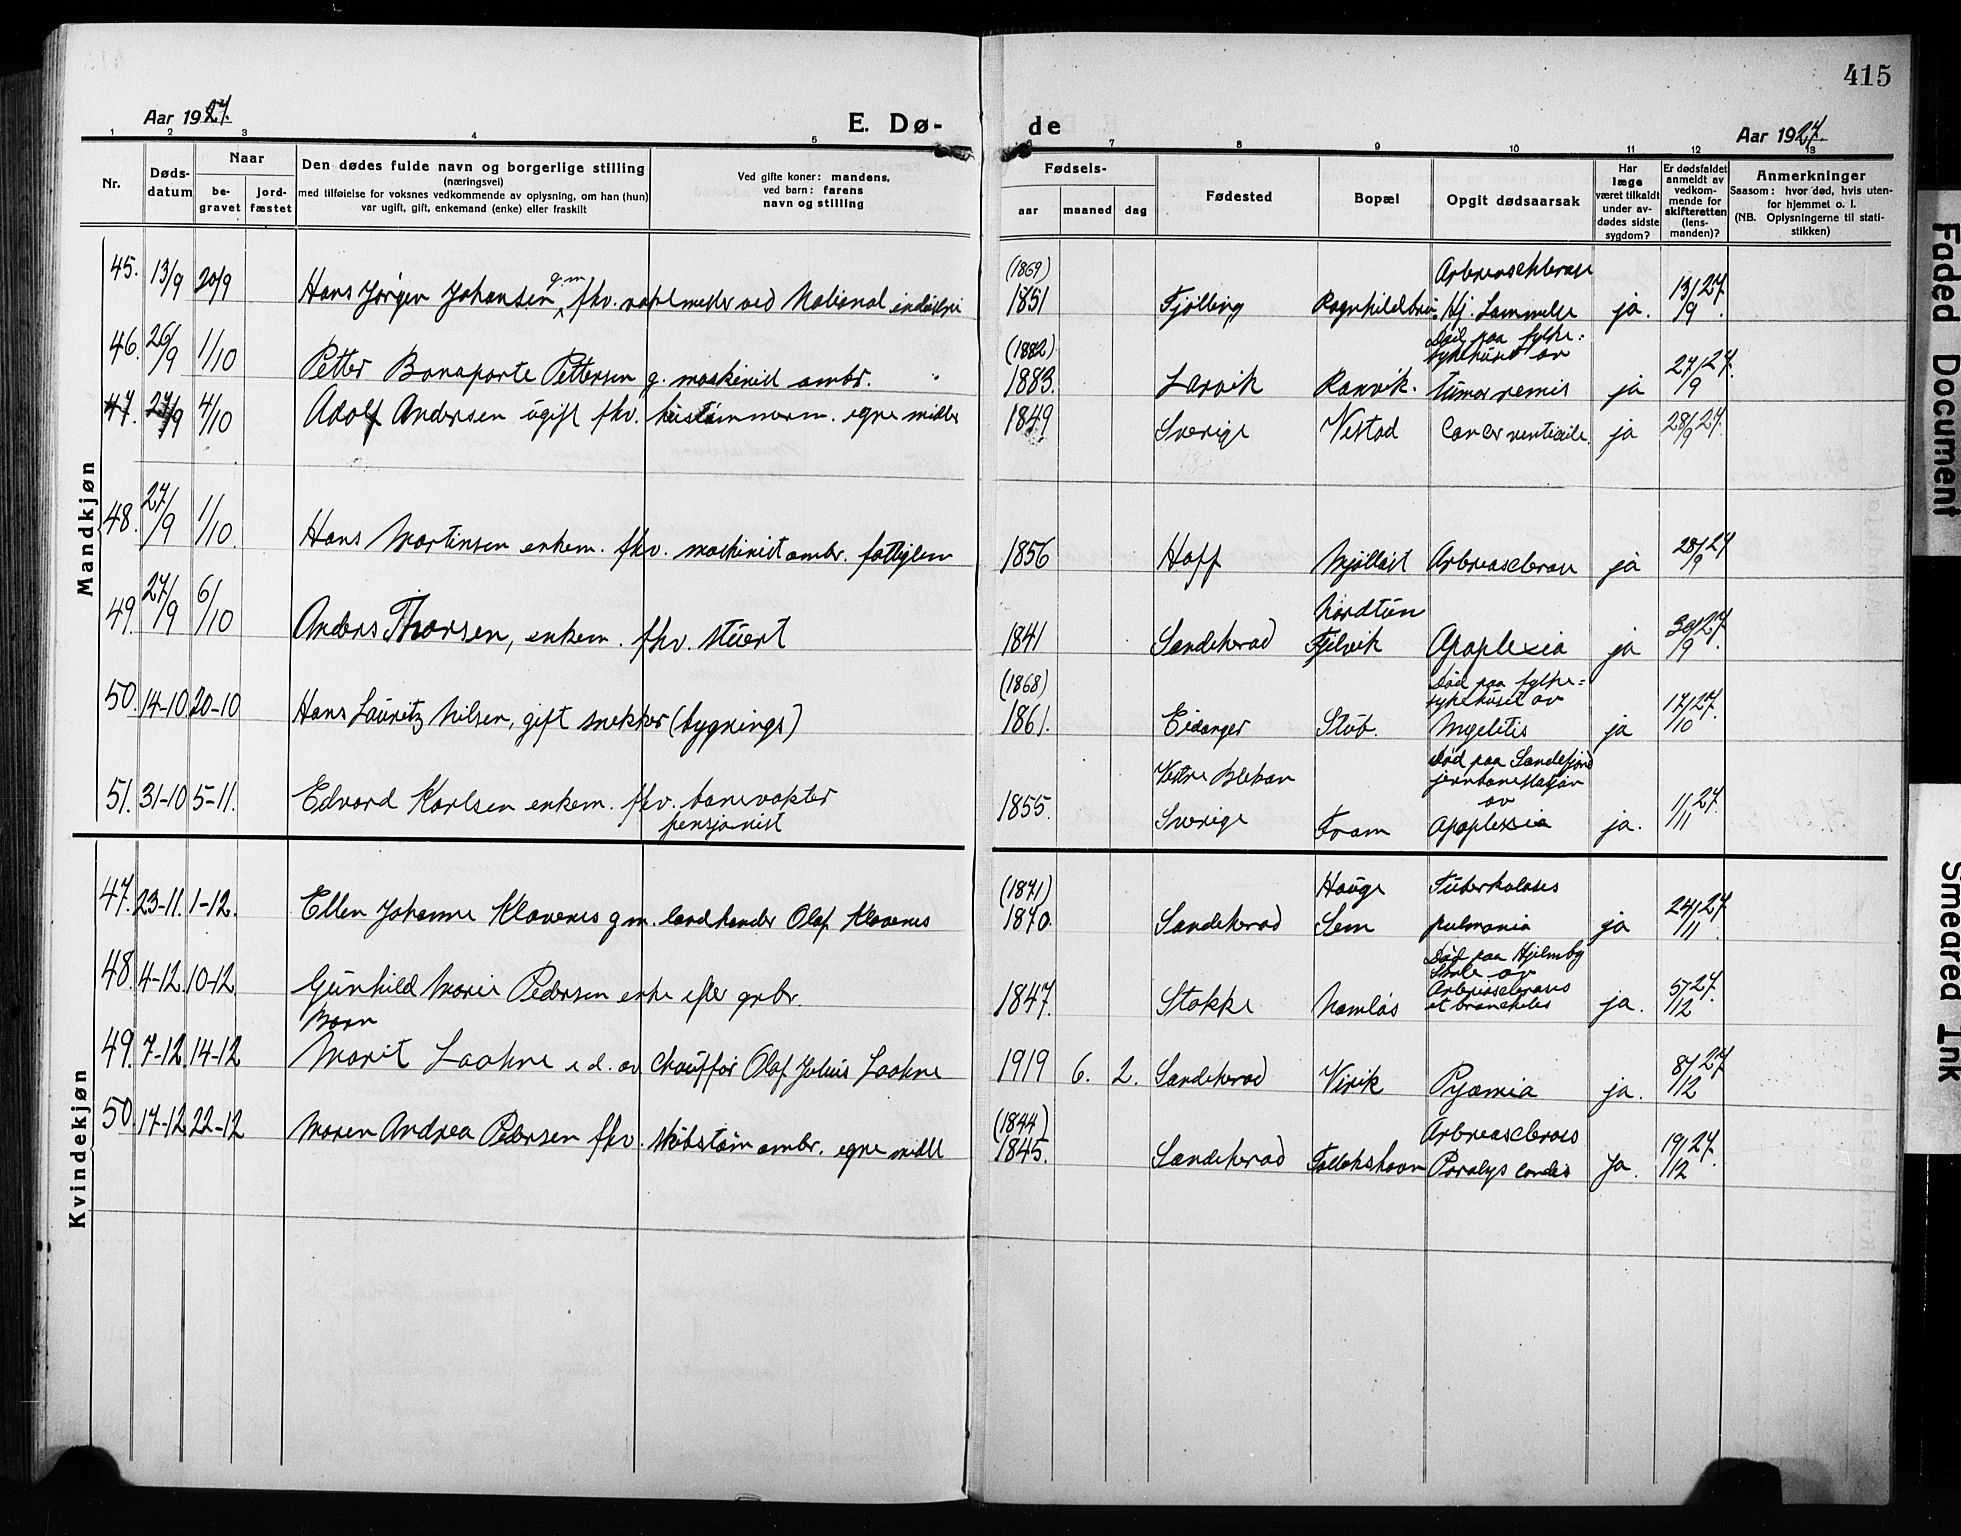 415
Aar 1927.
E. Dø-
de
Aar 1927.
1 2 3 4 5 6 7 8 9 10 11 12 13
Nr.
Døds-
datum
Naar
be-
gravet
jord-
fæstet
Den dødes fulde navn og borgerlige stilling
(næringsvei)
med tilføielse for voksnes vedkommende av oplysning, om han (hun)
var ugift, gift, enkemand (enke) eller fraskilt
Ved gifte koner: mandens,
ved barn: farens
navn og stilling
Fødsels-
aar
maaned
dag
Fødested
Bopæl
Opgit dødsaarsak
Har
læge
været tilkaldt
under av-
dødes sidste
sygdom?
Er dødsfaldet
anmeldt av
vedkom-
mende for
skifteretten
(lens-
manden)?
Anmerkninger
Saasom: hvor død, hvis uten-
for hjemmet o. l.
(NB. Oplysningerne til stati-
stikken)
Mandkjøn
45. 13/9 20/9 Hans Jørgen Johansen gm fhv. ved National (1869) 1851 Fjølling Hj. Lammelse ja. 13/9 27.
46. 26/9 1/10 Petter Bonaparte Pettersen g. maskinist ambr. (1882) 1883. Larvik Ranvik. Død paa fylke-
sykehuset av
tumor renis ja 27/9 27.
47. 27/9 4/10 Adolf Andersen ugift fhv. hustømmerm. egne midler 1849 Sverige Vestad Cancer ventricile. ja 28/9 27.
48. 27/9 1/10 Hans Martinsen enkem. fhv. maskinist ambr. fattiglem 1856 Hoff Mjølløst Arteriosclerose ja 28/9 27
49. 27/9 6/10 Anders Thorsen, enkem. fhv. stuert 1841 Sandeherad Nordtun
Fjelvik Apoplexia ja 30/9 27.
50. 14-10 20-10 Hans Lauritz Nilsen, gift snekker (bygnings) (1868) 1861. Eidanger Stub. Død paa fylke-
sykehuset av
Myelitis ja 17/10 27.
51. 31-10 5-11. Edvard Karlsen enkem. fhv. banevokter
pensjonist 1855. Vestre
Sverige Fram Død paa Sandefjord
jernbanestasjon
av
Apoplexia ja. 1/11 27.
Kvindekjøn
47. 23-11. 1-12. Ellen Johanne Klavenes g m. landhandler Olaf Klavenes (1871) 1870. Sandeherad Hauge
Sem Tuberkuloses
pulmonia ja 24/11 27.
48. 4-12. 10-12. Gunhild Marie Pedersen enke efter grbr. 1847. Stokke Namløs Død paa Hjelmby
Skole av
Arteriosclerosis
et bronchitis ja. 5/12 27.
Barn
49. 7-12. 14-12 Marit Laahne e. d. av Chauffør Olaf Julius Laahne 1919 6. 2. Sandeherad Virik Pyæmia ja. 8/12 27
50. 17-12. 22-12 Maren Andrea Pedersen fhv. skibstøm ambr. egne midl (1844) 1845. Sandeherad Tallakshavn Arteriosclerosis
Paralys cordis Ja. 19/12 27.
Faded Document
Smeared Ink